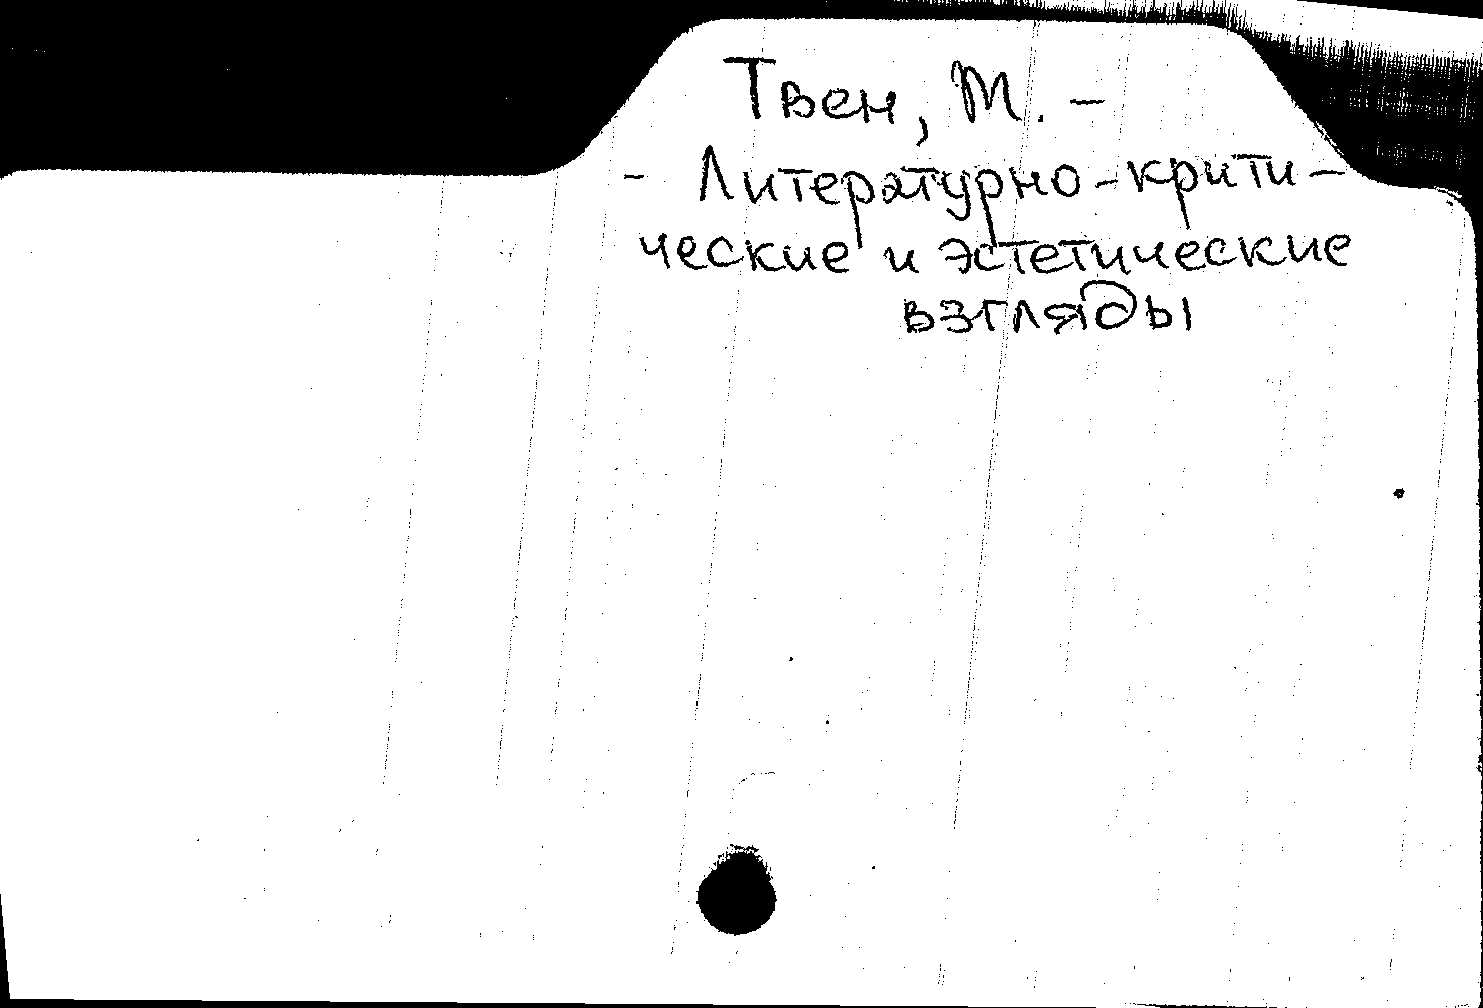 Твен, М. –
- Литературно-крити-
ческие и эстетические
взгляды